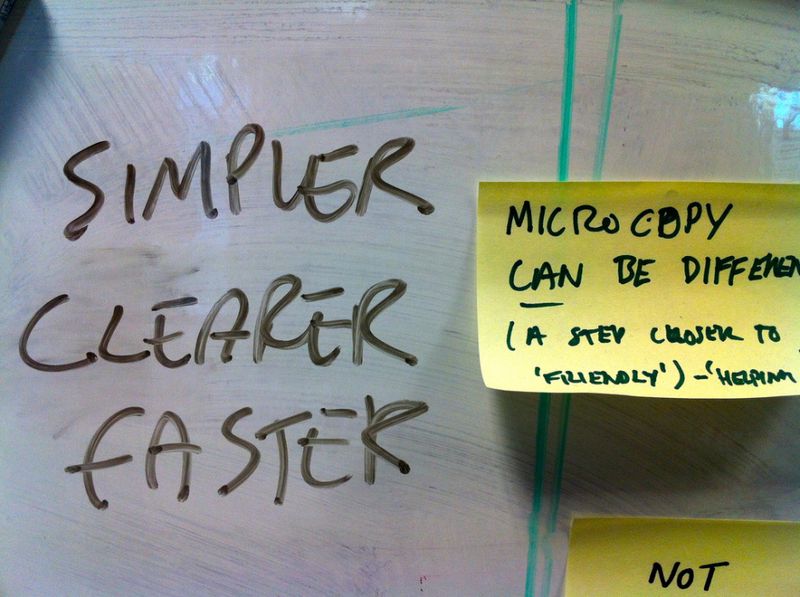 SIMPLER
CLEARER
FASTER
MICROCOPY
CAN BE DIFFEREN
(A STEP CLOSER TO
'FRIENDLY') - 'HELPING
NOT